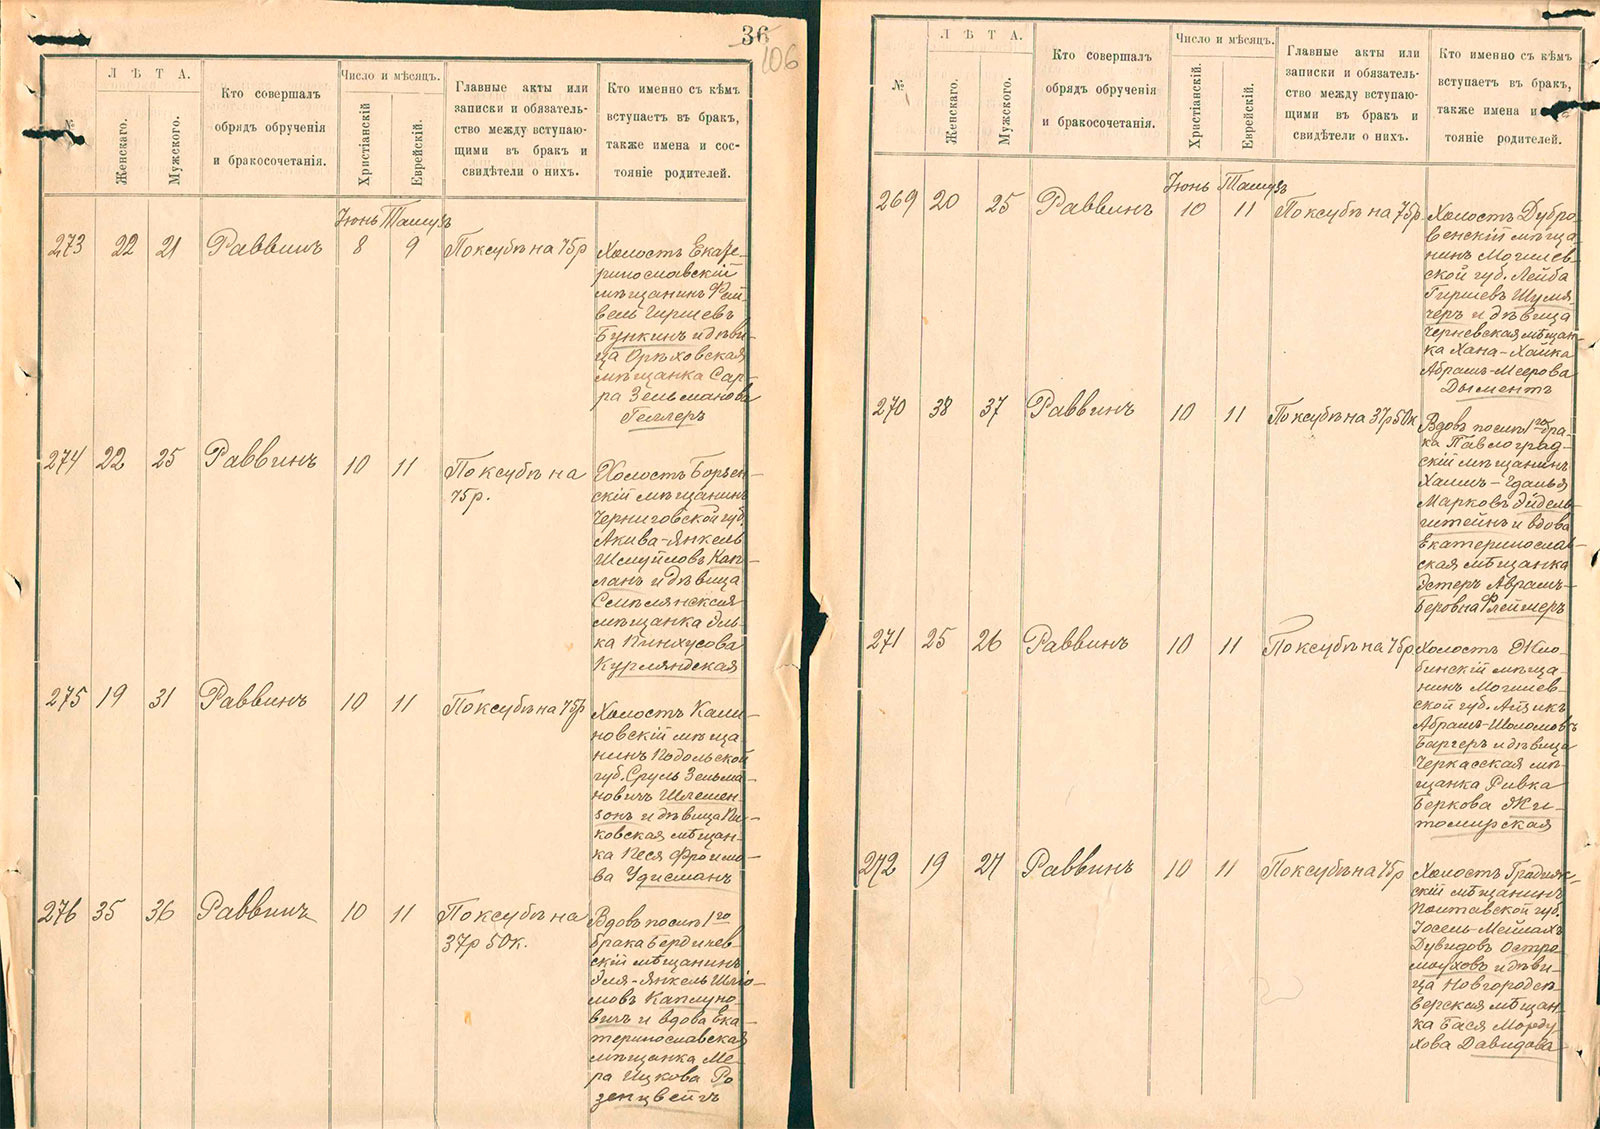 36
106
№
Л Ѣ Т А.
Женскаго.
Мужского.
Кто совершалъ
обрядъ обрученія
и бракосочетанія.
Число и мѣсяцъ.
Христіанскій
Еврейскій.
Главные акты или
записки и обязатель-
ство между вступаю-
щими въ бракъ и
свидѣтели о нихъ.
Кто именно съ кѣмъ
вступаетъ въ бракъ,
также имена и сос-
тояніе родителей.
Іюнь Тамузъ
273 22 21 Раввинъ 8 9 По ксубѣ на 75р
Холостъ Екате-
ринославскій
мѣщанинъ Фай-
вель Гиршевъ
Бункинъ и дѣви-
ца Орѣховская
мѣщанка Сар-
ра Зельманова
Геллеръ
274 22 25 Раввинъ 10 11 По ксубѣ на
75р.
Холостъ Борзен-
скій мѣщанинъ
Черниговской губ.
Акива-Янкель
Шмуйловъ Кап-
ланъ и дѣвица
Смѣлянская
мѣщанка Эль-
ка Пинхусова
Курляндская
275 19 31 Раввинъ 10 11 По ксубѣ на 75р
Холостъ Кали-
новскій мѣща-
нинъ Подольской
губ. Сруль Зельма-
новичъ Шлемен-
зонъ и дѣвица Пи-
ковская мѣщан-
ка Песя Фроимо-
ва Удисманъ
276 35 36 Раввинъ 10 11 По ксубѣ на
37р 50к.
Вдовъ послѣ 1го
брака Бердичев
скій мѣщанинъ
Эля-Янкель Шліо-
мовъ Каплуно-
вичъ и вдова Ека-
теринославская
мѣщанка Ме
ра Ицкова Ро
зенцвейгъ
№
Л Ѣ Т А.
Женскаго.
Мужского.
Кто совершалъ
обрядъ обрученія
и бракосочетанія.
Число и мѣсяцъ.
Христіанскій
Еврейскій.
Главные акты или
записки и обязатель-
ство между вступаю-
щими въ бракъ и
свидѣтели о нихъ.
Кто именно съ кѣмъ
вступаетъ въ бракъ,
также имена и
тояніе родителей.
Іюнь Тамузъ
269 20 25 Раввинъ 10 11 По ксубѣ на 75р.
Холостъ Дубро-
венскій мѣща-
нинъ Могилев-
ской губ. Лейба
Гиршевъ Шумя-
черъ и дѣвица
Черневская мѣщан-
ка Хана-Хайка
Абрамъ-Меерова
Дыментъ
270 38 37 Раввинъ 10 11 По ксубѣ на 37р 50к
Вдовъ послѣ 1го бра-
ка Павлоград-
скій мѣщанинъ
Хаимъ-Гдалья
Марковъ Эйдель-
штейнъ и вдова
Екатеринослав-
ская мѣщанка
Эстеръ Аврамъ-
Беровна Флейшеръ
271 25 26 Раввинъ 10 11 По ксубѣ на 75р
Холостъ Жло-
бинскій мѣща-
нинъ Могилев-
ской губ. Айзикъ
Абрамъ-Шоломовъ
Баргеръ и дѣвица
Черкасская мѣ-
щанка Ривка
Беркова Жи-
томирская
272 19 27 Раввинъ 10 11 По ксубѣ на 75р
Холостъ Градижс-
скій мѣщанинъ
Полтавской губ.
Іосель-Мейлахъ
Дувидовъ Остро
моуховъ и дѣви-
ца Новгородсѣ-
верская мѣщан-
ка Бася Морду
хова Давидова